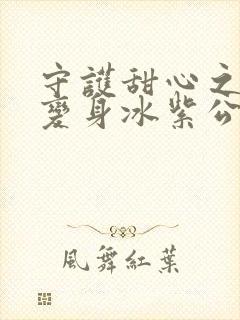 守護甜心之
變身冰紫公
風舞紅葉